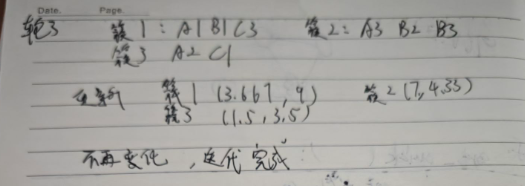 Date. Page.
轮3 簇1: A1 B1 C3 簇2: A3 B2 B3
簇3 A2 C1
更新 簇1 (3.667, 9) 簇2 (7, 4.33)
簇3 (1.5, 3.5)
不再变化, 迭代完成